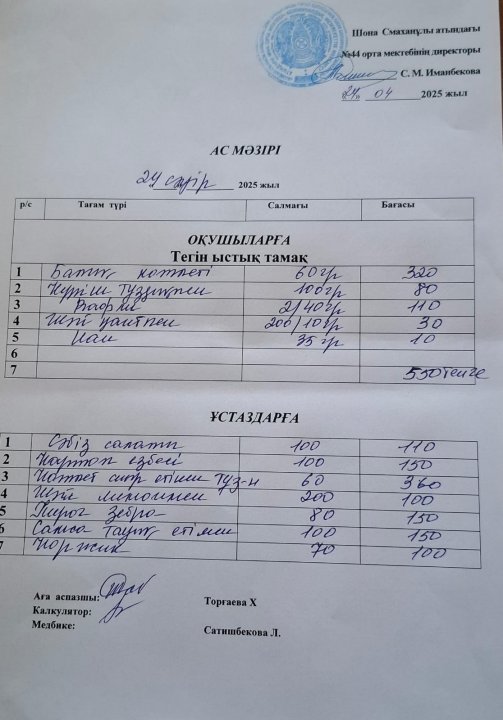 Шона Смаханұлы атындағы
№44 орта мектебінің директоры
С. М. Иманбекова
24 04 2025 жыл
АС МӘЗІРІ
24 сәуір 2025 жыл
р/с Тағам түрі Салмағы Бағасы
ОҚУШЫЛАРҒА
Тегін ыстық тамақ
1 Балық котлеті 60гр 320
2 Күріш тұздықпен 100гр 80
3 Вафли 2/40гр 110
4 Шәй қантпен 200/10гр 30
5 Нан 35 гр 10
6
7 550 теңге
ҰСТАЗДАРҒА
1 Сәбіз салаты 100 110
2 Картоп езбесі 100 150
3 Котлет сиыр етінен тұз-н 60 360
4 Шәй лимонмен 200 100
5 Пирог Зебра 80 150
6 Самса тауық етімен 100 150
7 Коржик 70 100
Аға аспазшы:
Калкулятор: Торғаева Х
Медбике:
Сатишбекова Л.